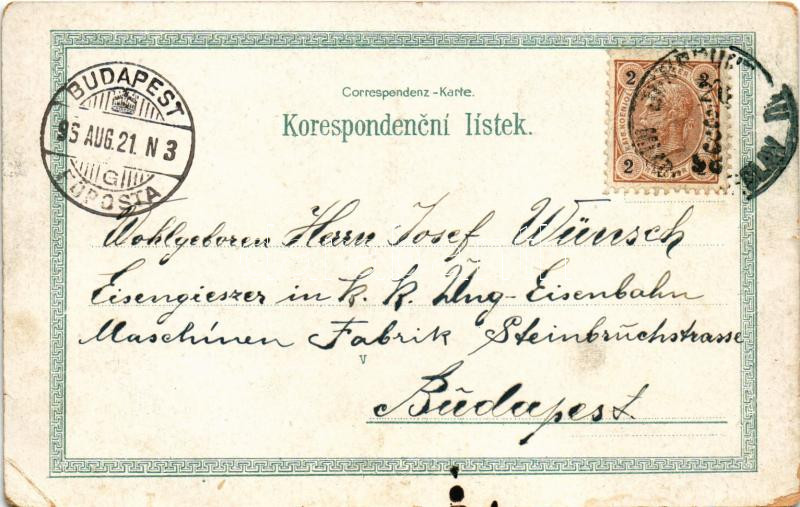 Correspondenz-Karte.
Korespondenční lístek.
BUDAPEST
95 AUG. 21. N 3
G
FŐPOSTA
2 2
2 2
Wohlgeboren Herrn Josef Wünsch
Eisengieszer in k. k. Ung-Eisenbahn
Maschinen Fabrik Steinbruchstrasse
v
Budapest